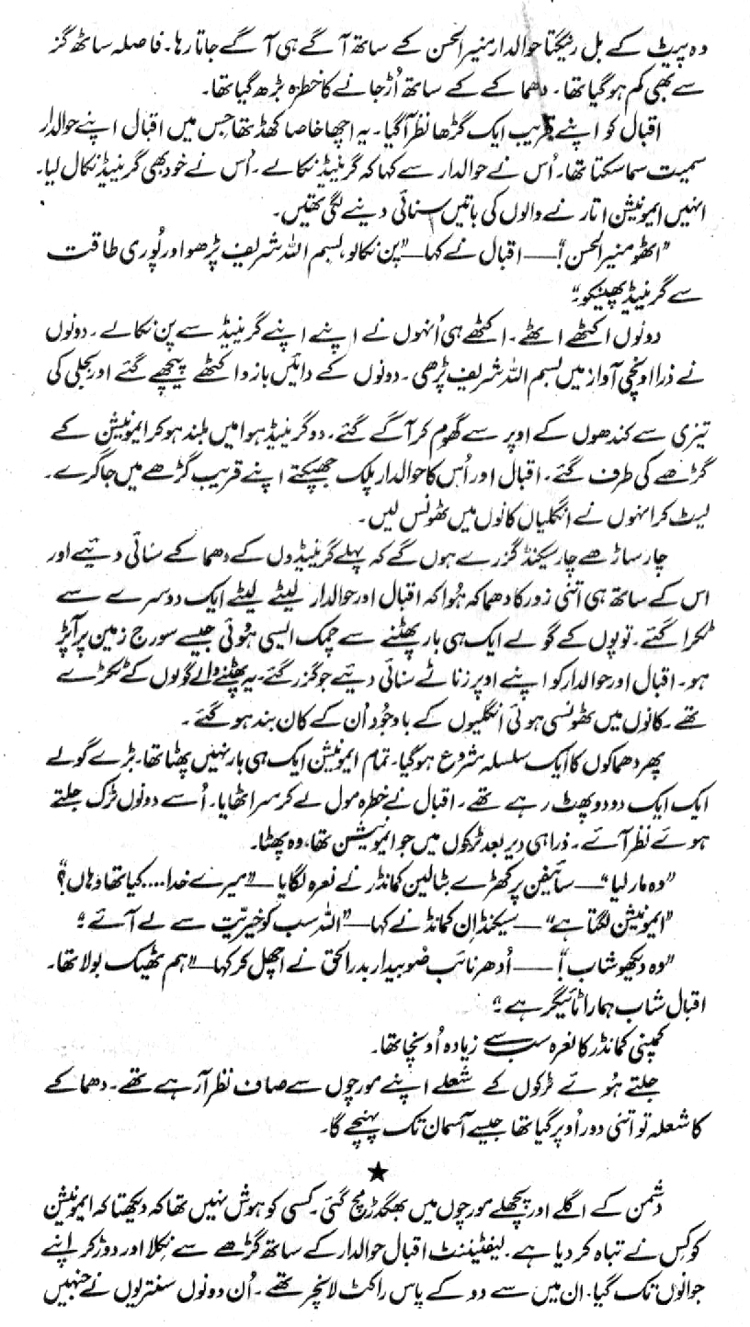 وہ پیٹ کے بل رینگتا حوالدار منیرالحسن کے ساتھ آگے ہی آگے جاتا رہا۔ فاصلہ ساٹھ گز
سے بھی کم ہو گیا تھا۔ دھماکے کے ساتھ اُڑ جانے کا خطرہ بڑھ گیا تھا۔
اقبال کو اپنے قریب ایک گڑھا نظر آ گیا۔ یہ اچھا خاصا کھڈ تھا جس میں اقبال اپنے حوالدار
سمیت سما سکتا تھا۔ اُس نے حوالدار سے کہا کہ گرینیڈ نکالے۔ اُس نے خود بھی گرینیڈ نکال لیا۔
انہیں ایمونیشن اتارنے والوں کی باتیں سنائی دینے لگی تھیں۔
”اٹھو منیرالحسن!“ — اقبال نے کہا — ”پن نکالو، بسم اللہ شریف پڑھو اور پُوری طاقت
سے گرینیڈ پھینکو“
دونوں اکٹھے اٹھے۔ اکٹھے ہی اُنہوں نے اپنے اپنے گرینیڈ سے پن نکالے۔ دونوں
نے ذرا اونچی آواز میں بسم اللہ شریف پڑھی۔ دونوں کے دائیں بازو اکٹھے پیچھے گئے اور بجلی کی
تیزی سے کندھوں کے اوپر سے گھوم کر آگے گئے۔ دو گرینیڈ ہوا میں بلند ہو کر ایمونیشن کے
گڑھے کی طرف گئے۔ اقبال اور اُس کا حوالدار پلک جھپکتے اپنے قریب گڑھے میں جا گرے۔
لیٹ کر انہوں نے انگلیاں کانوں میں ٹھونس لیں۔
چار ساڑھے چار سیکنڈ گزرے ہوں گے کہ پہلے گرینیڈوں کے دھماکے سنائی دیئے اور
اس کے ساتھ ہی اتنی زور کا دھماکہ ہُوا کہ اقبال اور حوالدار لیٹے لیٹے ایک دوسرے سے
ٹکرا گئے۔ توپوں کے گولے ایک ہی بار پھٹنے سے چمک ایسی ہُوئی جیسے سورج زمین پر آ پڑا
ہو۔ اقبال اور حوالدار کو اپنے اوپر زناٹے سنائی دیئے جو گزر گئے۔ یہ پھٹنے والے گولوں کے ٹکڑے
تھے۔ کانوں میں ٹھونسی ہوئی انگلیوں کے باوجُود اُن کے کان بند ہو گئے۔
پھر دھماکوں کا ایک سلسلہ شروع ہو گیا۔ تمام ایمونیشن ایک ہی بار نہیں پھٹا تھا۔ بڑے گولے
ایک ایک دو دو پھٹ رہے تھے۔ اقبال نے خطرہ مول لے کر سر اٹھایا۔ اُسے دونوں ٹرک جلتے
ہوئے نظر آئے۔ ذرا ہی دیر بعد ٹرکوں میں جو ایمونیشن تھا، وہ پھٹا۔
”وہ مار لیا“ — سائیفن پر کھڑے بٹالین کمانڈر نے نعرہ لگایا — ”میرے خدا .... کیا تھا وہاں؟“
”ایمونیشن لگتا ہے“ — سیکنڈ اِن کمانڈ نے کہا — ”اللہ سب کو خیریّت سے لے آئے“
”وہ دیکھو شاب!“ — اُدھر نائب صوبیدار بدرالحق نے اچھل کر کہا — ”ہم ٹھیک بولا تھا۔
اقبال شاب ہمارا ٹائیگر ہے“
کمپنی کمانڈر کا نعرہ سب سے زیادہ اُونچا تھا۔
جلتے ہُوئے ٹرکوں کے شعلے اپنے مورچوں سے صاف نظر آ رہے تھے۔ دھماکے
کا شعلہ تو اتنی دور اُوپر گیا تھا جیسے آسمان تک پہنچے گا۔
★
دشمن کے اگلے اور پچھلے مورچوں میں بھگدڑ مچ گئی۔ کسی کو ہوش نہیں تھا کہ دیکھتا کہ ایمونیشن
کو کِس نے تباہ کر دیا ہے۔ لیفٹیننٹ اقبال حوالدار کے ساتھ گڑھے سے نکلا اور دوڑ کر اپنے
جوانوں تک گیا۔ ان میں سے دو کے پاس راکٹ لانچر تھے۔ اُن دونوں سنتریوں نے جنہیں